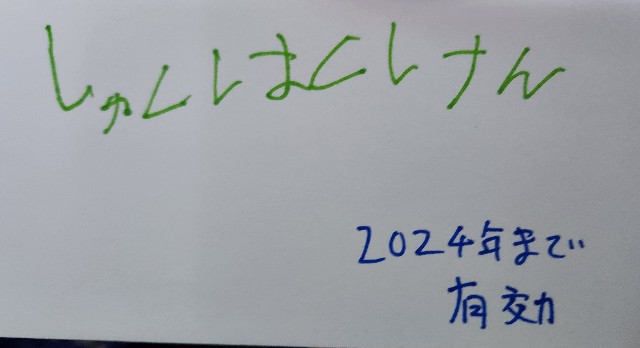 しゅくはくけん
2024年まで
有効